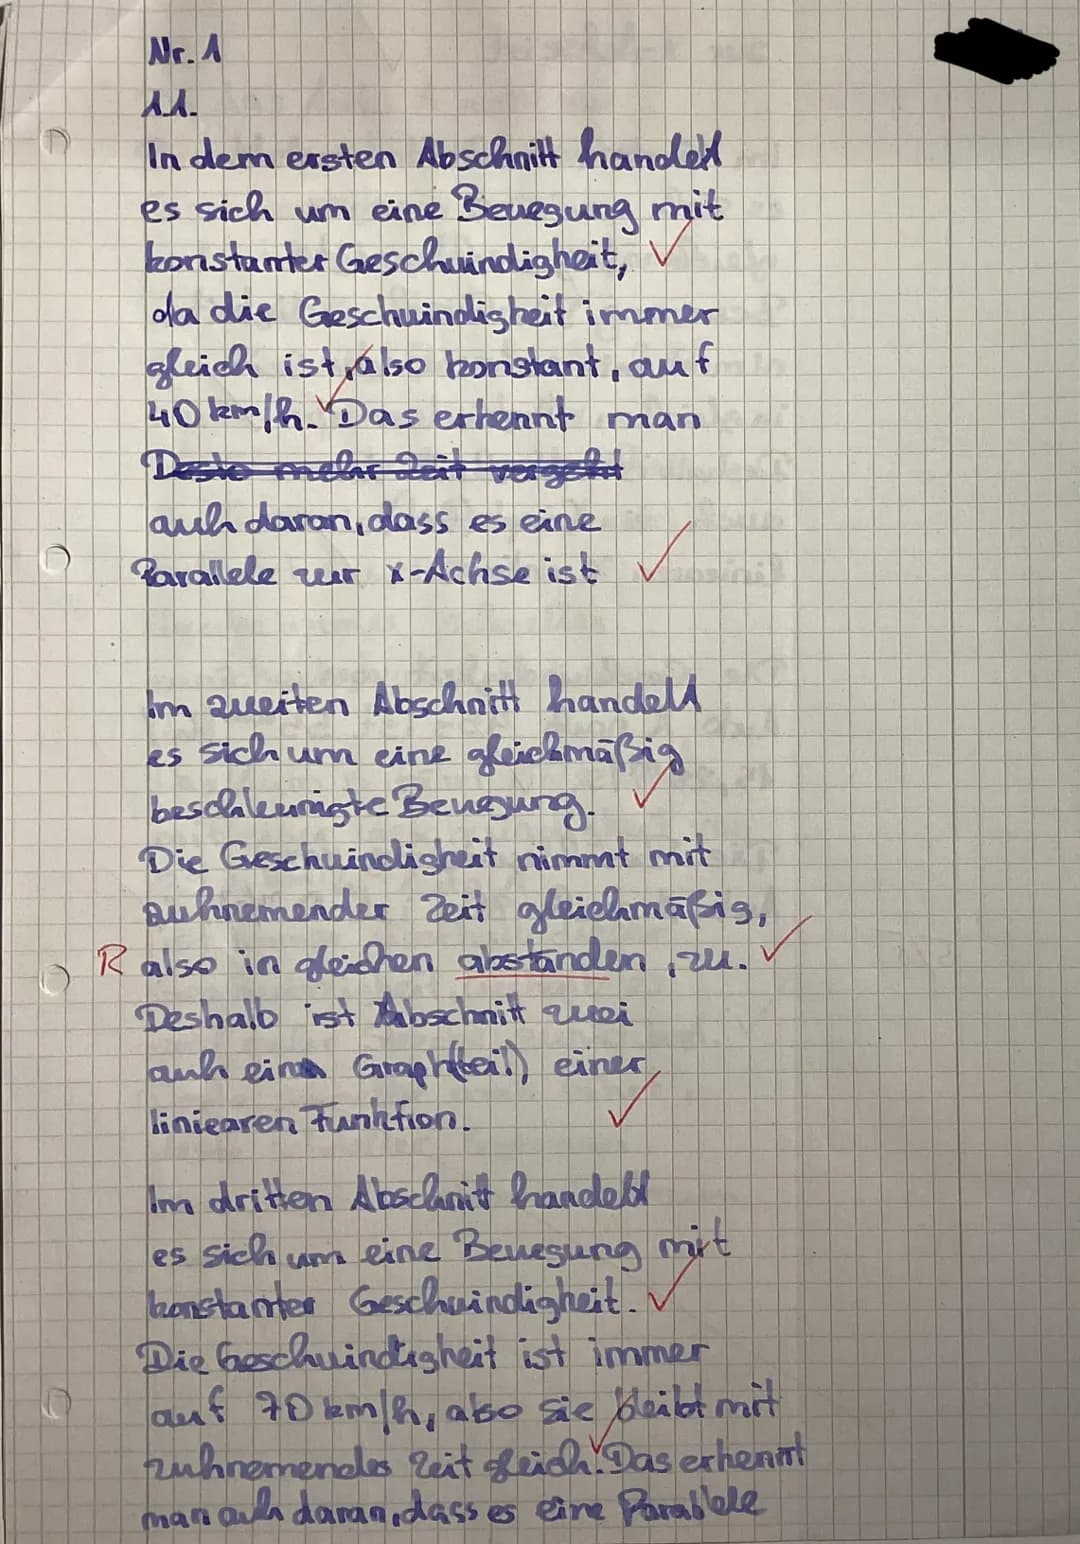 Nr. 1
1.1.
In dem ersten Abschnitt handelt
es sich um eine Bewegung mit
konstanter Geschwindigheit,
da die Geschwindigheit immer
gleich ist, also konstant, auf
40 km/h. Das erkennt man
Desto mehr Zeit vergeht
auh daran, dass es eine
Parallele zur x-Achse ist
Im zweiten Abschnitt handelt
es sich um eine gleichmäßig
beschleunigte Bewegung.
Die Geschwindigheit nimmt mit
zuhnemender Zeit gleichmäßig,
R also in gleichen abständen, zu.
Deshalb ist Abschnitt zwei
auh ein Graph(teil) einer
liniearen Funktion.
Im dritten Abschnitt handelt
es sich um eine Bewegung mit
konstanter Geschwindigheit.
Die Geschwindigheit ist immer
auf 70 km/h, also sie bleibt mit
zuhnemende Zeit gleich. Das erkennt
man auh daran, dass es eine Parallele